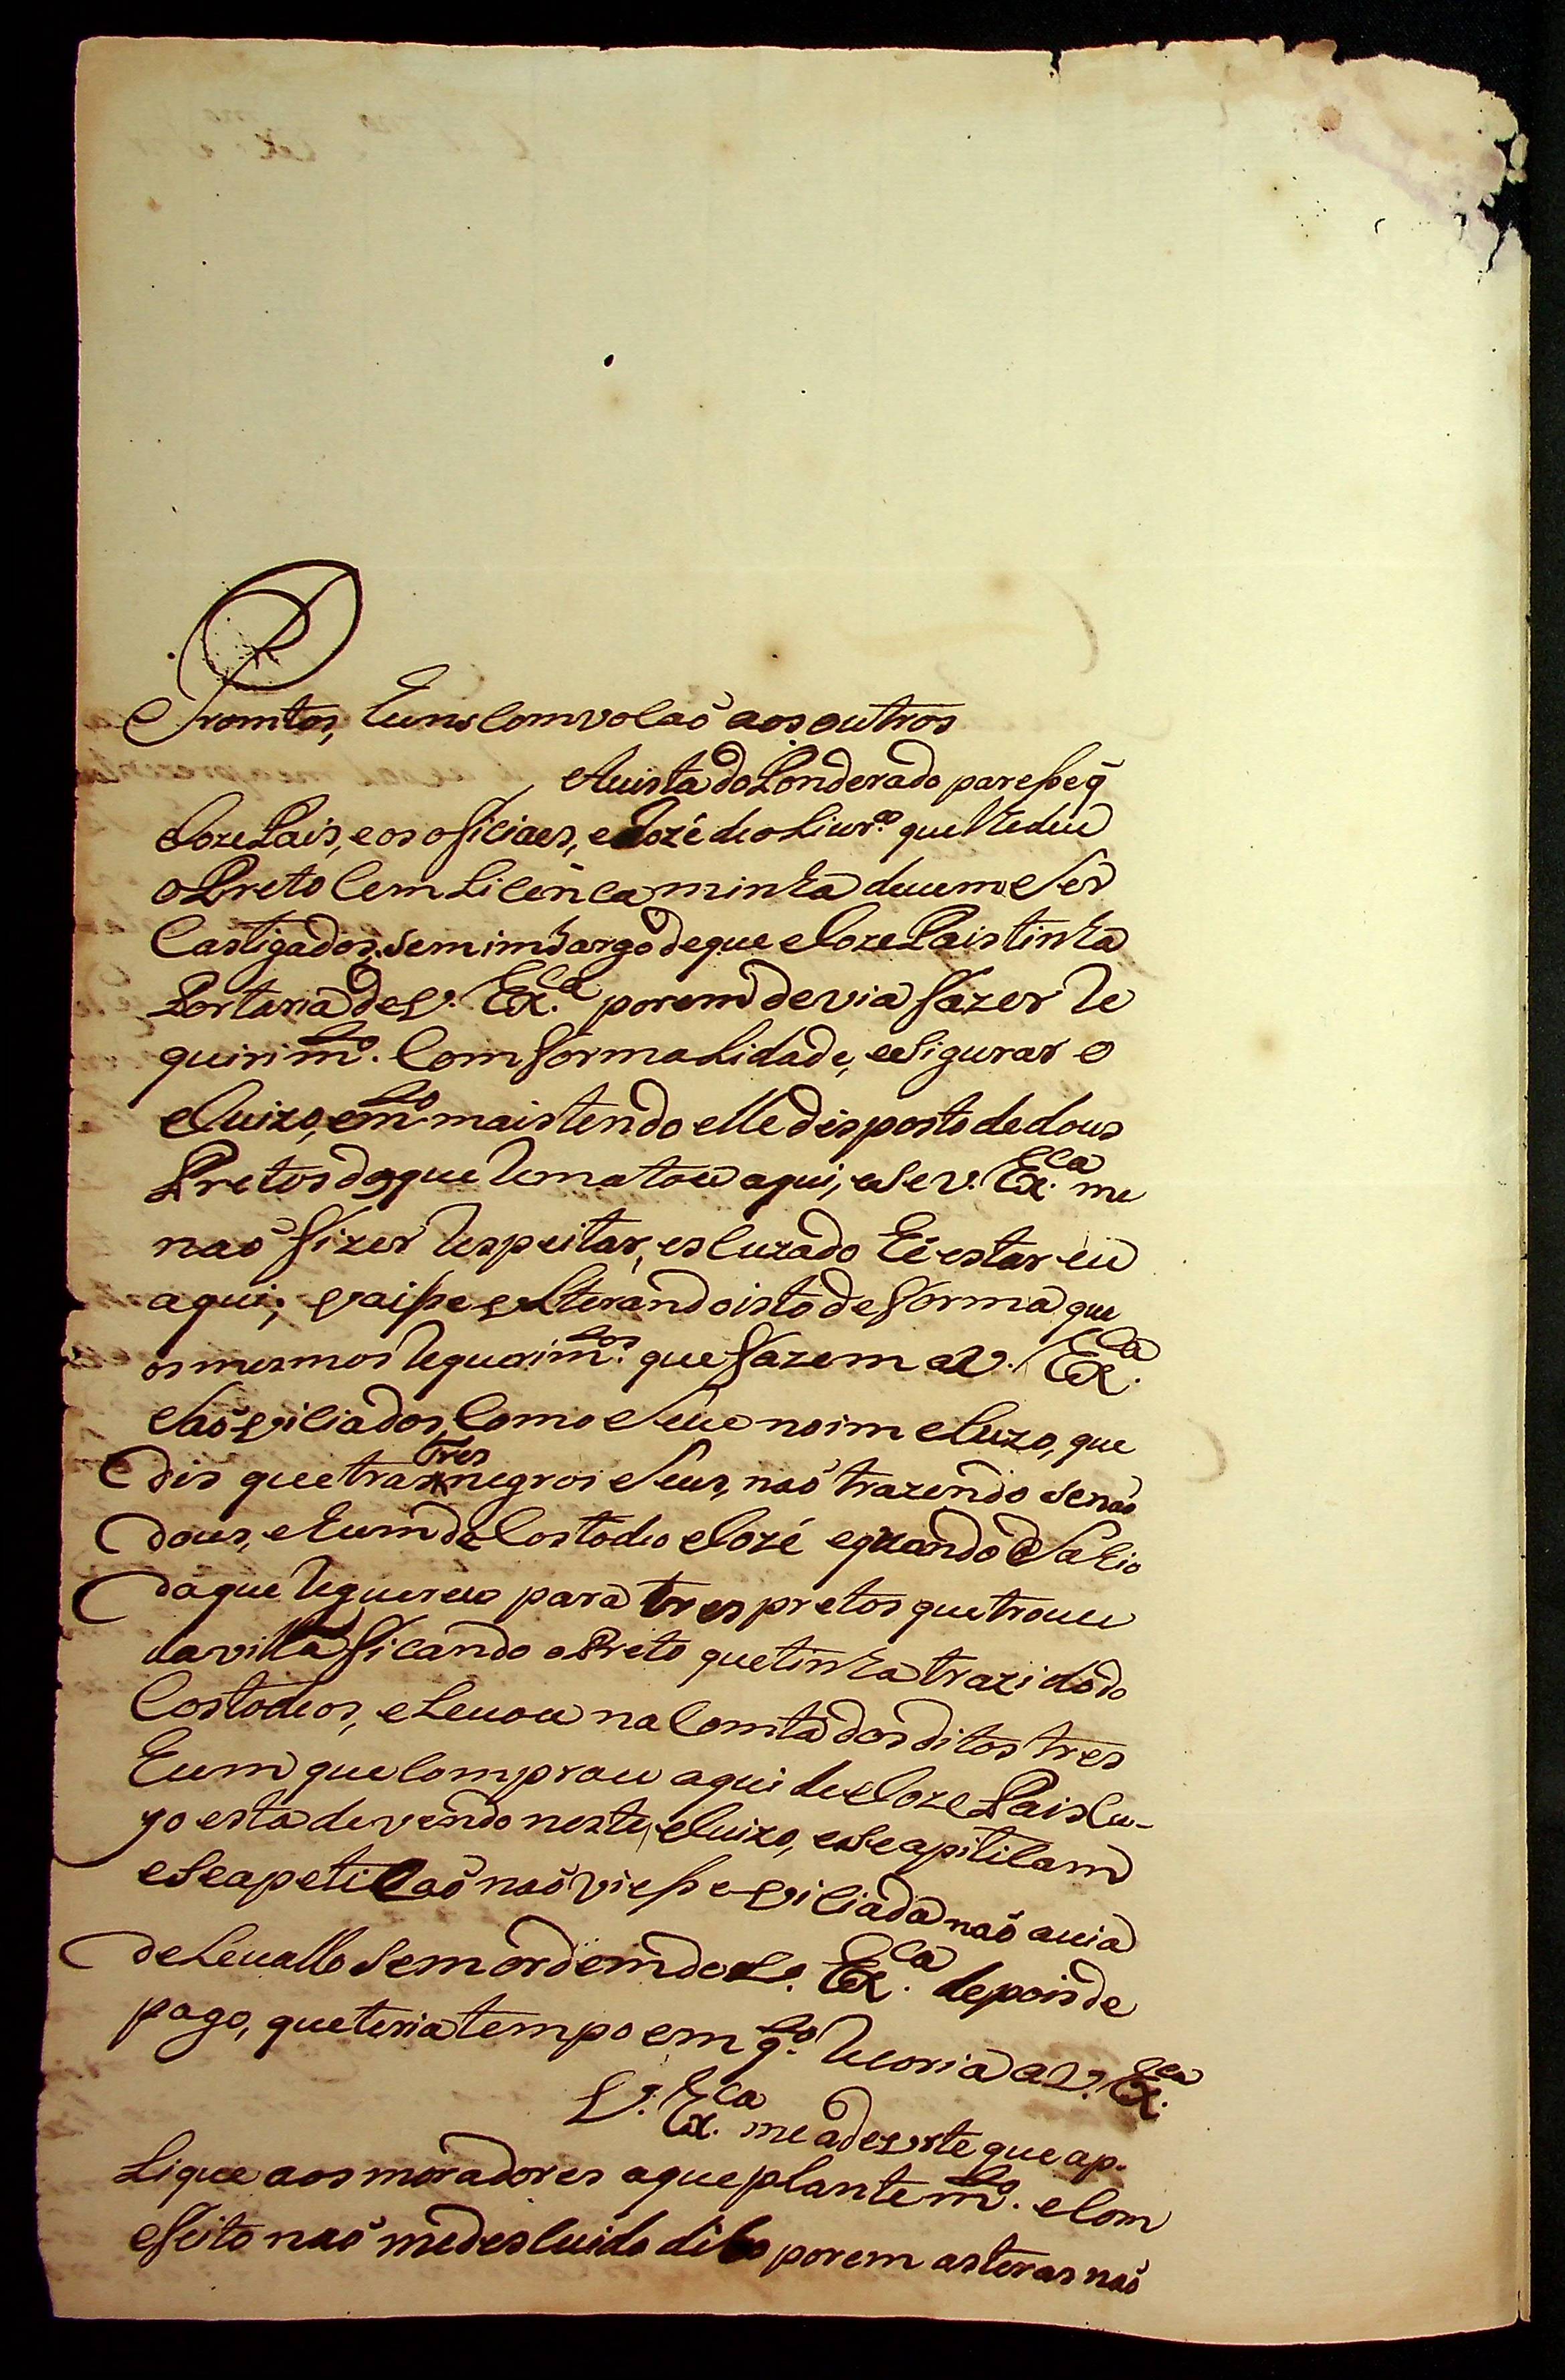 Promtos, huns comvocaõ aos outros
Auista do Ponderado paresse q̃
Joze Pais, e os oficiaes, e Jozé de oliur.ª que Vedeu
o Preto Cem Licença minha deuem Ser
Castigados, sem imbargo de que Joze Pais tinha
Portaria de V. Ex.ca porem devia fazer Re
quirim.to Com formalidade, e Sigurar o
Juizo, e m.to mais tendo elle disposto de dous
Pretos do que Rematou aqui, e Se V. Ex.ca me
naõ fizer Respeitar, escuzado hé estar eu
aqui; vaisse alterando isto de forma que
os mesmos Requirim.tos que fazem a V. Ex.ca
Saõ viciados, Como Seue no imcluzo, que
dis que tras tres negros Seus, naõ trazendo Senaõ
dous, e hum de Costodio Jozé e quando Sahio
daque Requereu para tres pretos que trouue
da villa ficando o Preto que tinha trazido do
Costodeos, e Leuou na Comta dos ditos tres
hum que Comprou aqui de Joze Pais Cu-
yo esta devendo neste Juizo, e Se apiticam
e Se apeticaõ naõ viesse viciada naõ auia
de Leuallo Sem ordem de V. Ex.ca depois de
pago, que teria tempo em q.to Recoria a V. Ex.ca
V. Ex.ca me adeverte que ap-
Lique aos moradores aque plantem m.to e Com
efeito naõ me descuido diço porem as teras naõ